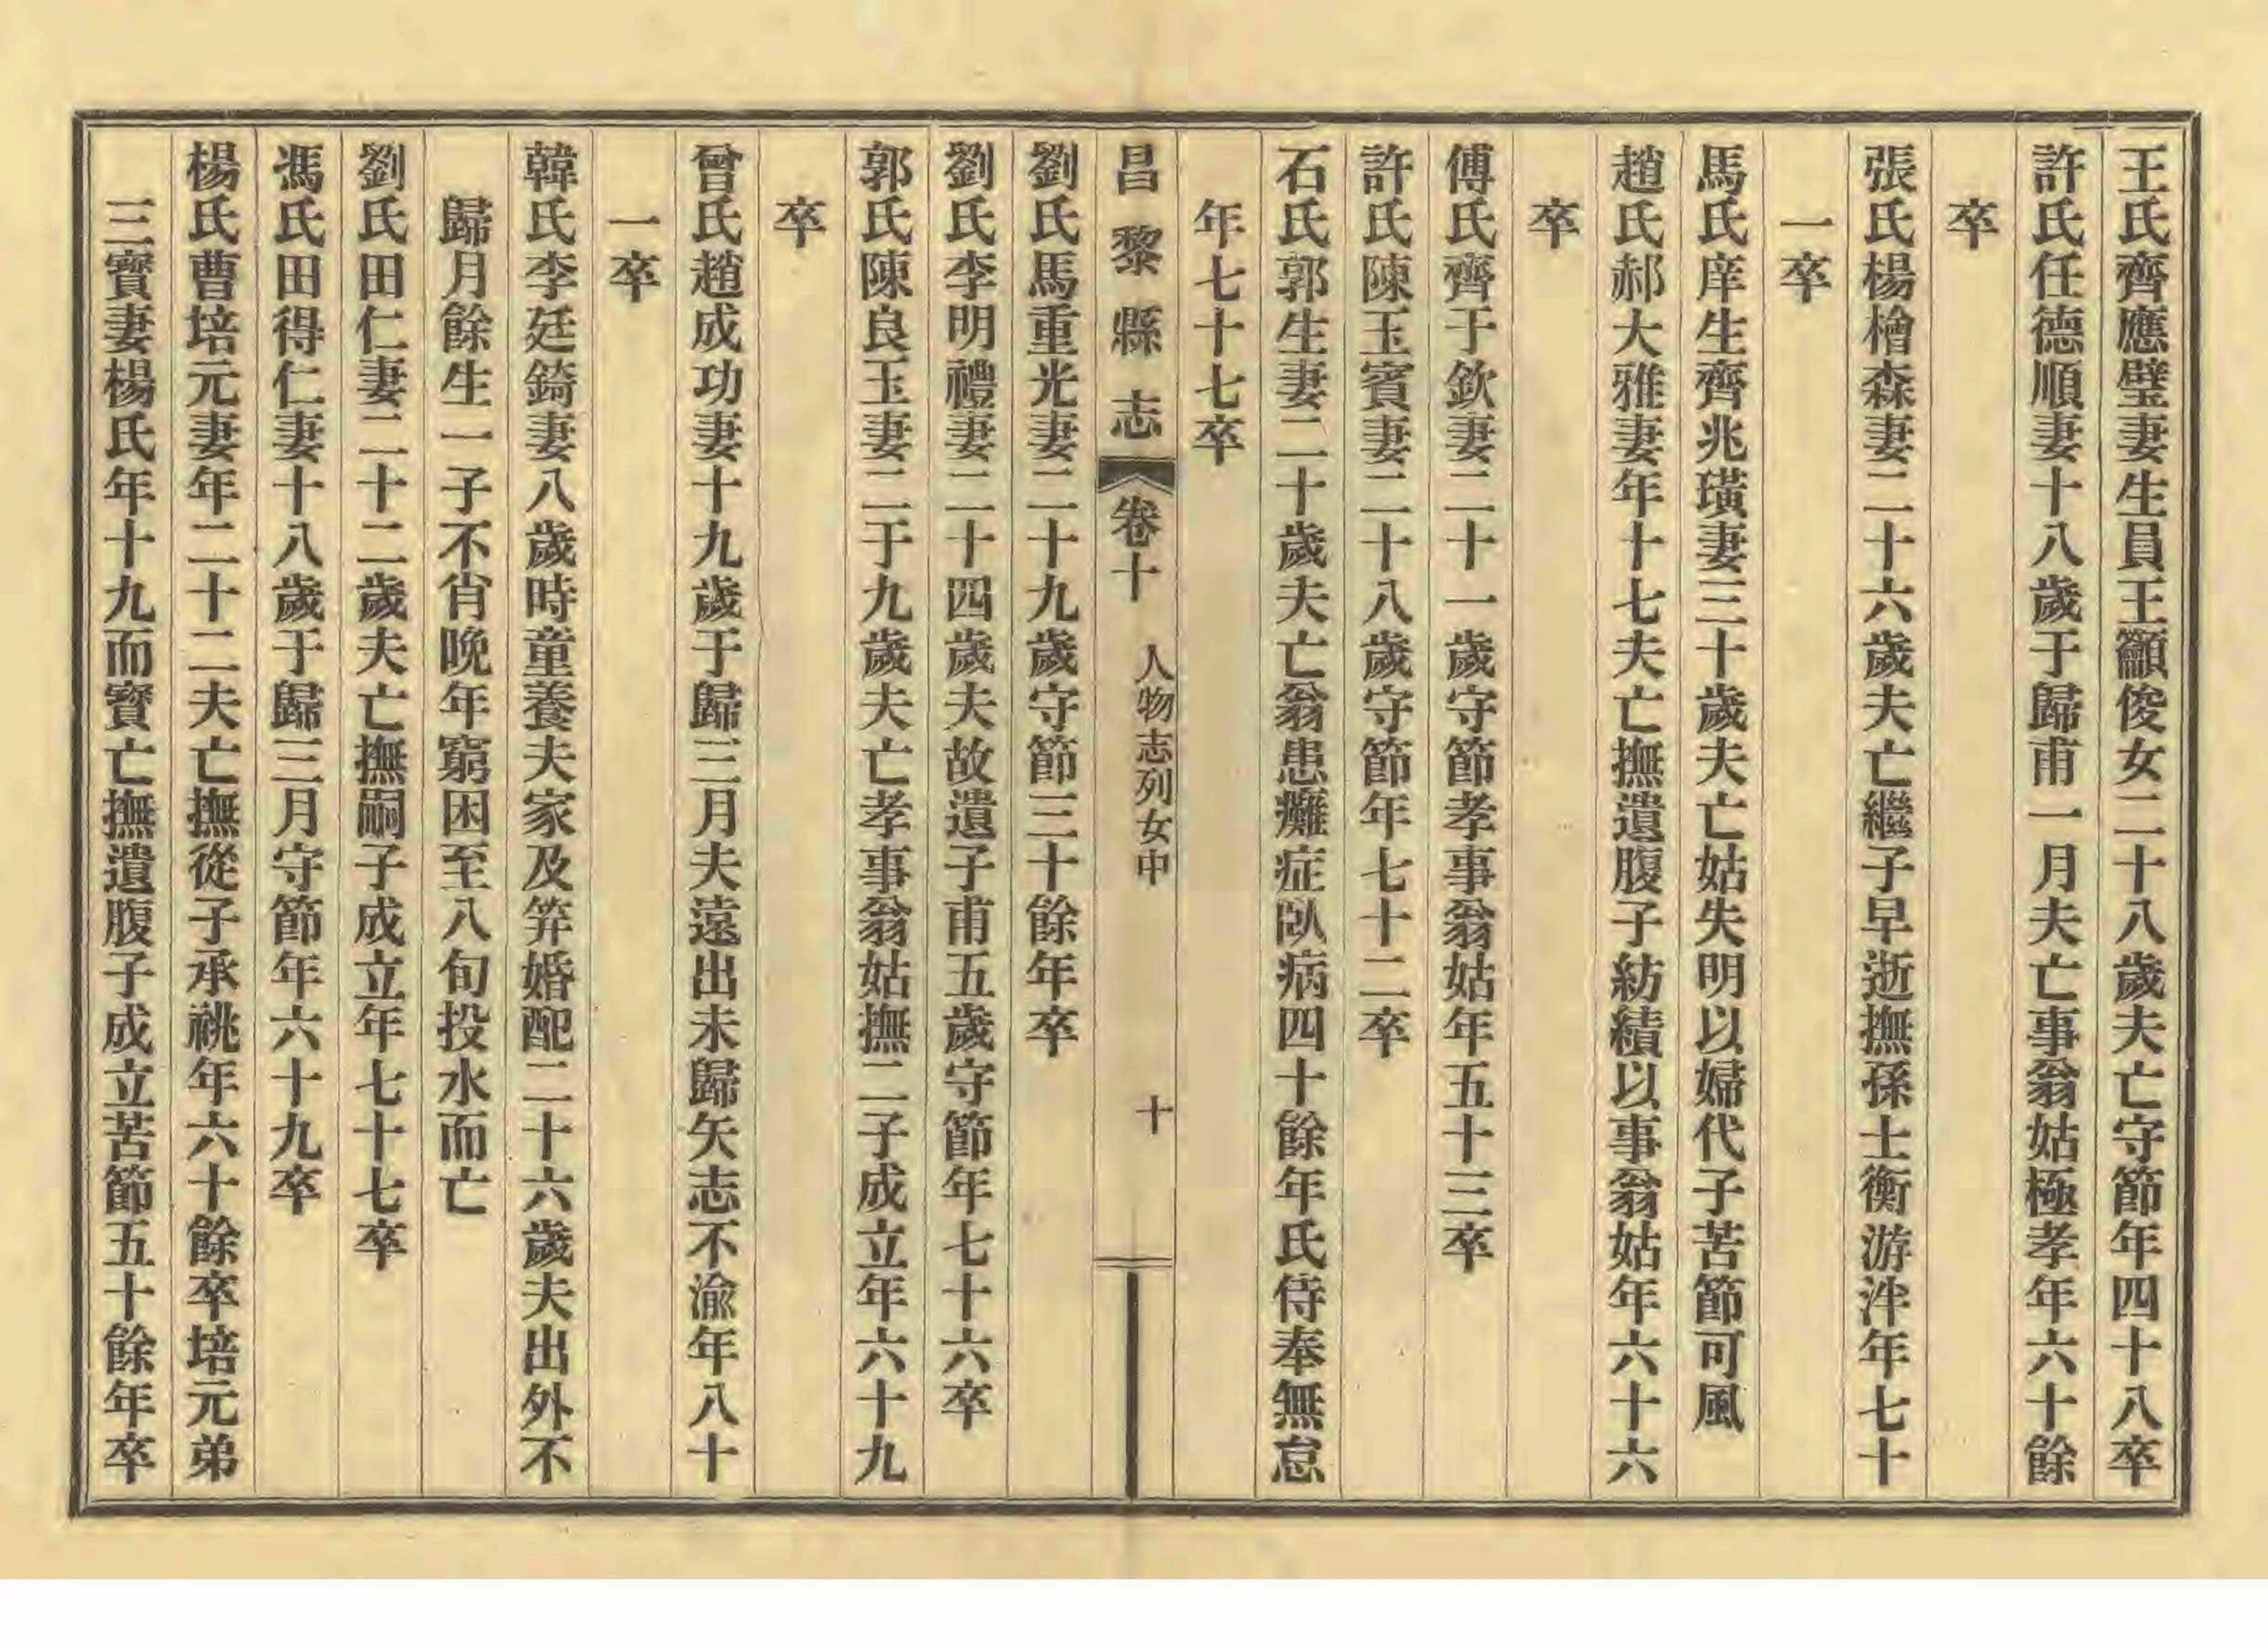 王氏齊應璧妻生員王龥俊女二十八歲夫亡守節年四十八卒
許氏任德順妻十八歲于歸甫一月夫亡事翁姑極孝年六十餘
卒
張氏楊檜森妻二十六歲夫亡繼子早逝撫孫士衡游泮年七十
一卒
馬氏庠生齊兆璜妻三十歲夫亡姑失明以婦代子苦節可風
趙氏郝大雅妻年十七夫亡撫遺腹子紡績以事翁姑年六十六
卒
傅氏齊于欽妻二十一歲守節孝事翁姑年五十三卒
許氏陳玉賓妻二十八歲守節年七十二卒
石氏郭生妻二十歲夫亡翁患癱症臥病四十餘年氏侍奉無怠
年七十七卒
昌黎縣志 卷十 人物志列女中 十
劉氏馬重光妻二十九歲守節三十餘年卒
劉氏李明禮妻二十四歲夫故遺子甫五歲守節年七十六卒
郭氏陳良玉妻二于九歲夫亡孝事翁姑撫二子成立年六十九
卒
曾氏趙成功妻十九歲于歸三月夫遠出未歸矢志不渝年八十
一卒
韓氏李廷錡妻八歲時童養夫家及笄婚配二十六歲夫出外不
歸月餘生一子不肖晚年窮困至八旬投水而亡
劉氏田仁妻二十二歲夫亡撫嗣子成立年七十七卒
馮氏田得仁妻十八歲于歸三月守節年六十九卒
楊氏曹培元妻年二十二夫亡撫從子承祧年六十餘卒培元弟
三寶妻楊氏年十九而寶亡撫遺腹子成立苦節五十餘年卒